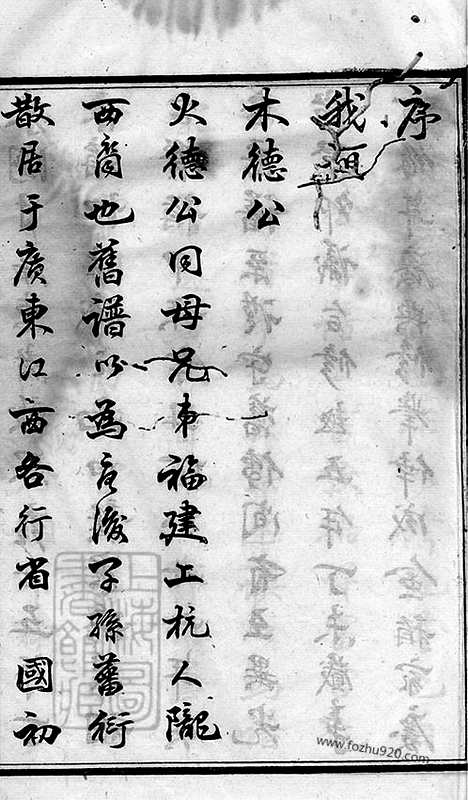 序
我
木德公
火德公同母兄弟福建上杭人隴
西裔也舊譜以為前後子孫蕃衍
散居于廣東江西各行省 國初
www.fozhu920.com